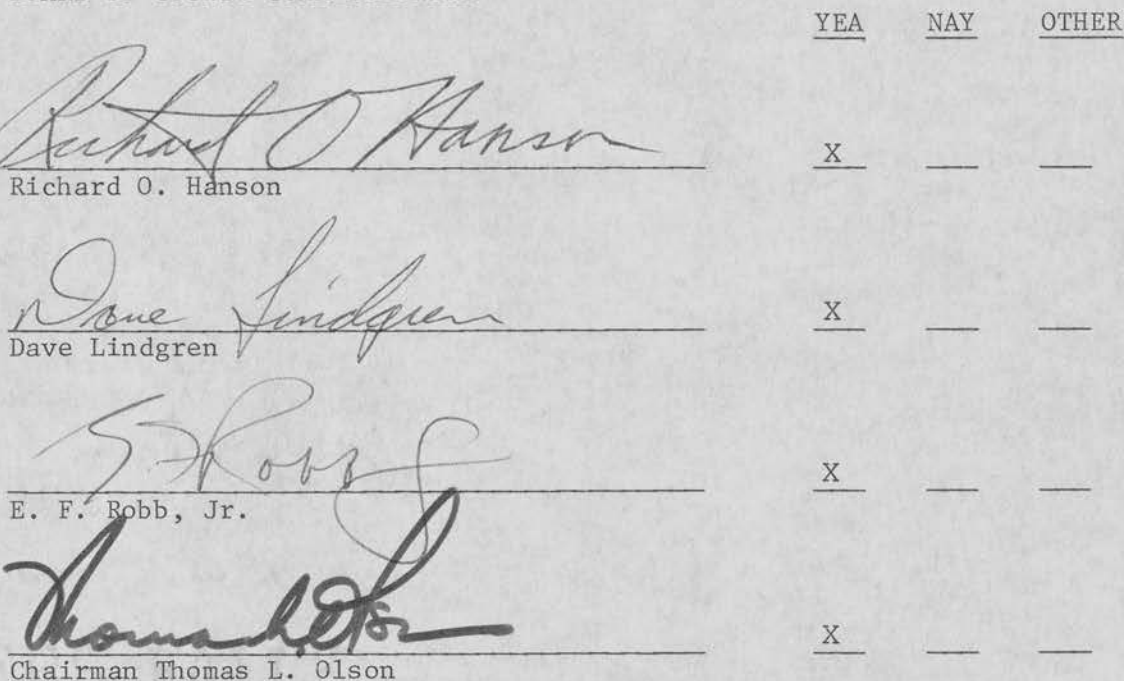 YEA NAY OTHER
Richard O Hanson X
Richard O. Hanson
Dave Lindgren X
Dave Lindgren
E. F. Robb Jr X
E. F. Robb, Jr.
Thomas L. Olson X
Chairman Thomas L. Olson